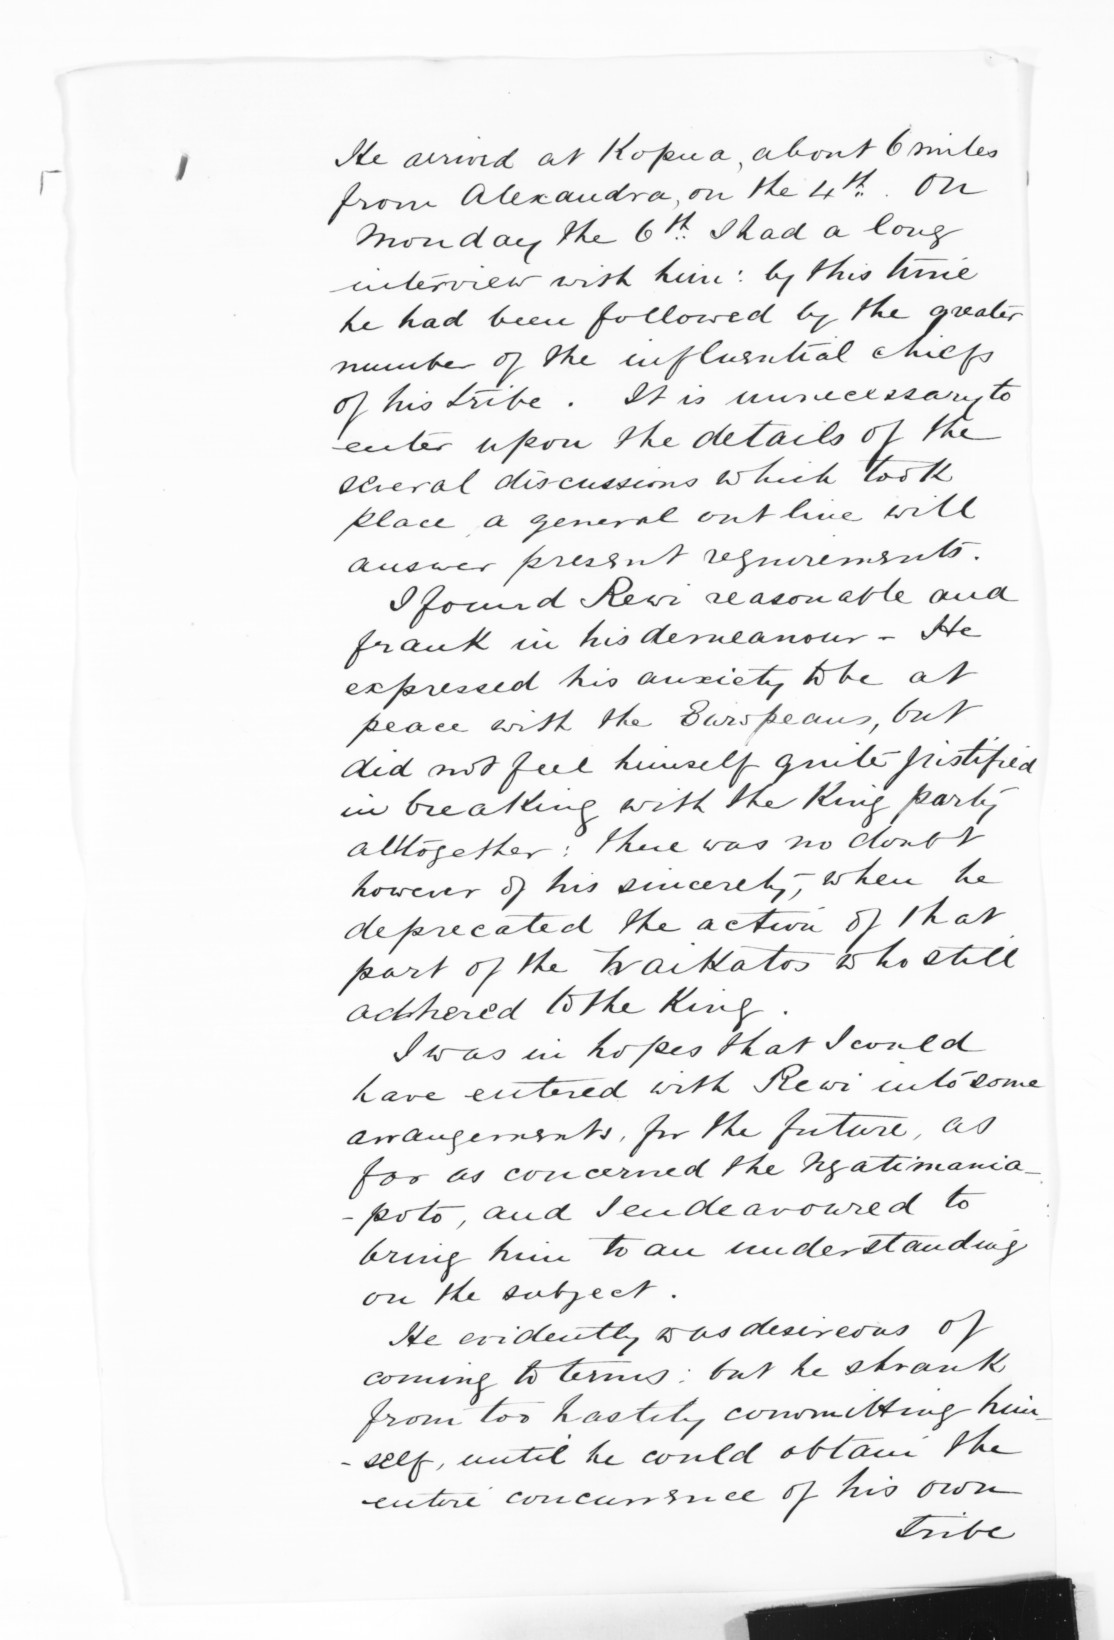 He arrived at Kopua, about 6 miles
from Alexandra, on the 4th. On
Monday the 6th. I had a long
interview with him: by this time
he had been followed by the greater
number of the influential chiefs
of his tribe. It is unnecessary to
enter upon the details of the
several discussions which took
place, a general outline will
answer present requirements.
I found Rewi reasonable and
frank in his demeanour - He
expressed his anxiety to be at
peace with the Europeans, but
did not feel himself quite justified
in breaking with the King party
alltogether: there was no doubt
however of his sincerety, when he
deprecated the action of that
part of the Waikatos who still
adhered to the King.
I was in hopes that I could
have entered with Rewi into some
arrangements, for the future, as
far as concerned the Ngatimania-
-poto, and I endeavoured to
bring him to an understanding
on the subject.
He evidently was desireous of
coming to terms: but he shrank
from too hastily committing him-
-self, until he could obtain the
entire concurrence of his own
tribe